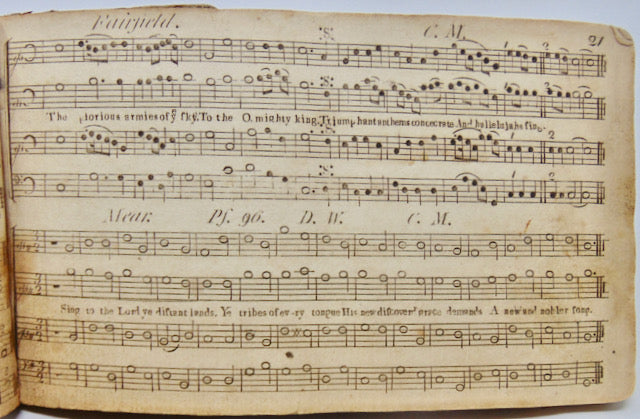 Fairfield. C. M. 21
1 2
The glorious armies of yͤ ſky, To the O. mighty king, Triumphant anthems consecrate And hallelujahs ſing.
1 2
Mear. Pſ. 96. D. W. C. M.
Sing to the Lord ye diſtant lands, Ye tribes of ev-ry tongue His new diſcover'd grace demands A new and nobler ſong.